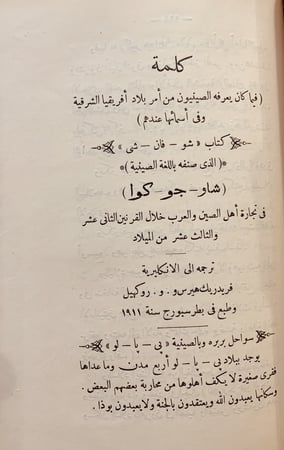 كلمة
(فيما كان يعرفه الصينيون من أمر بلاد أفريقيا الشرقية
وفى أسمائها عندهم)
كتاب « شو – فان – شى »
*( الذى صنفه باللغة الصينية )*
(شاو – جو – كوا)
فى تجارة أهل الصين والعرب خلال القرنين الثانى عشر
والثالث عشر من الميلاد
ترجمه الى الانكليزية
فريدريك هيرس و . و . روكهيل
وطبع فى بطرسبورج سنة ١٩١١
سواحل بربره وبالصينية « بى – پا – لو »
يوجد ببلاد بى – پا – لو أربع مدن وما عداها
فقرى صغيرة لا يكف أهلوها من محاربة بعضهم البعض .
وسكانها يعبدون الله ويعتقدون بالجنة ولا يعبدون بوذا .